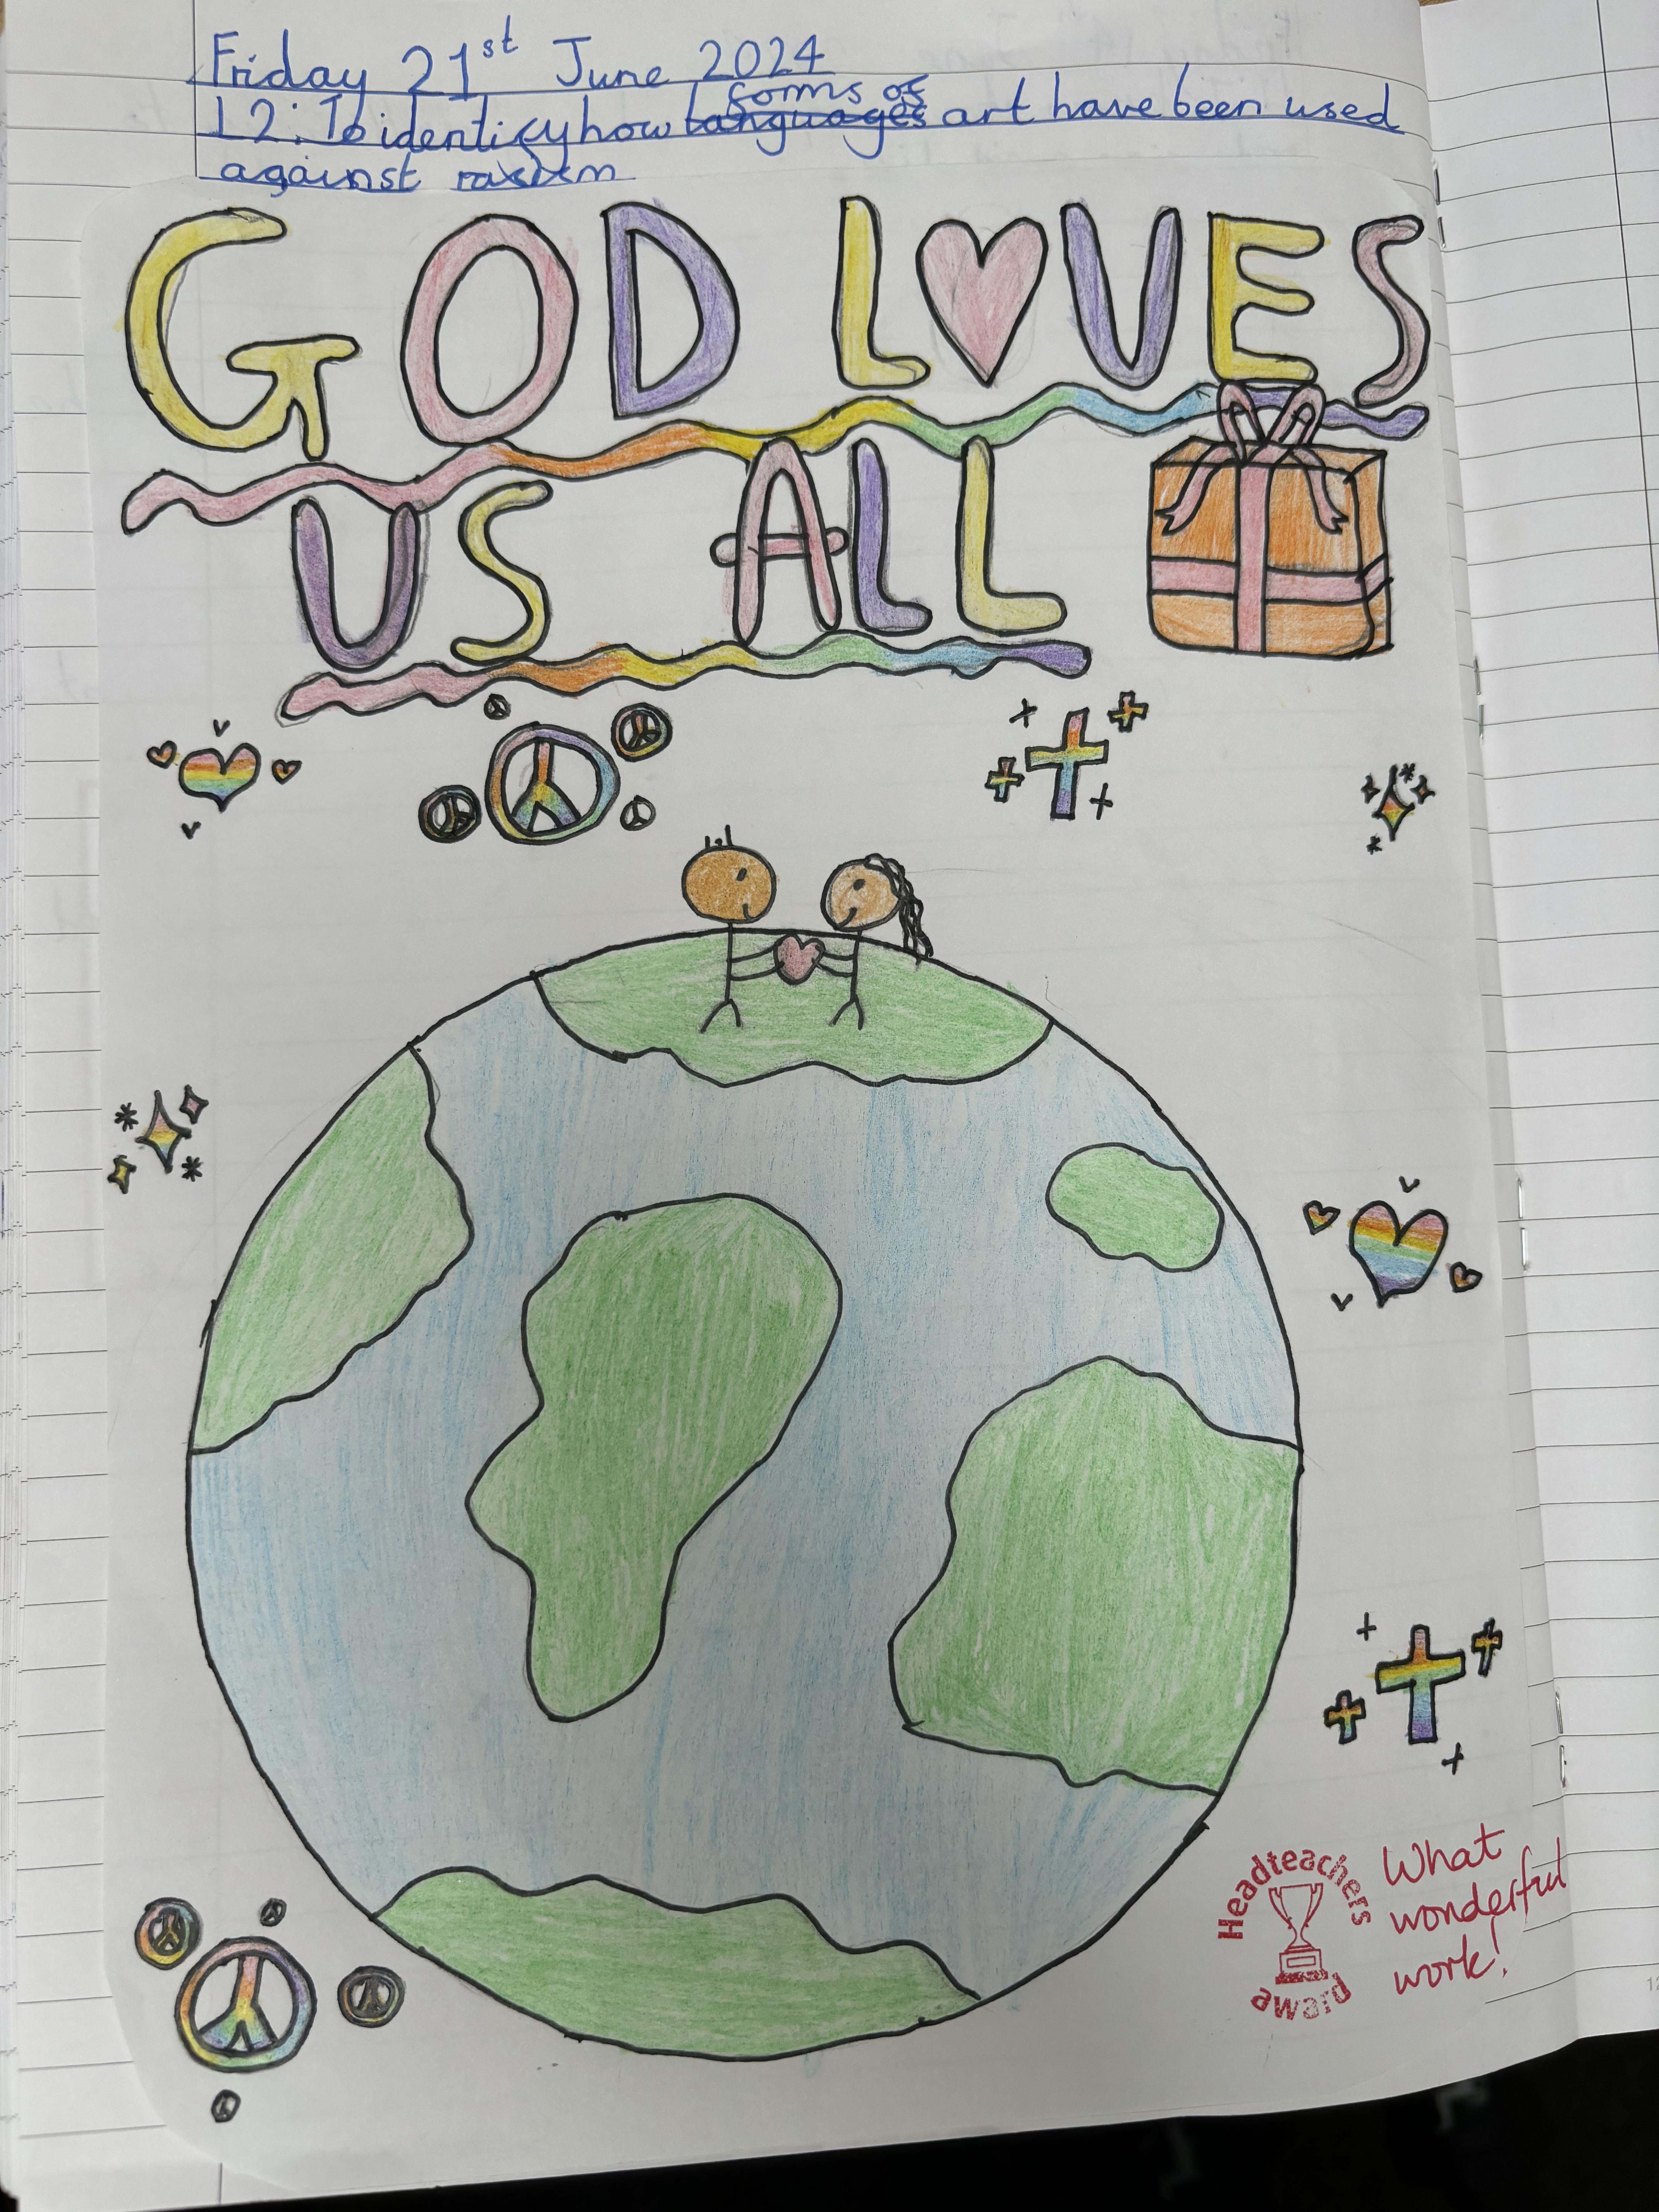 Friday 21st June 2024
L2: To identify how languages forms of art have been used
against racism
GOD LOVES
US ALL
Headteachers
award
What
wonderful
work!